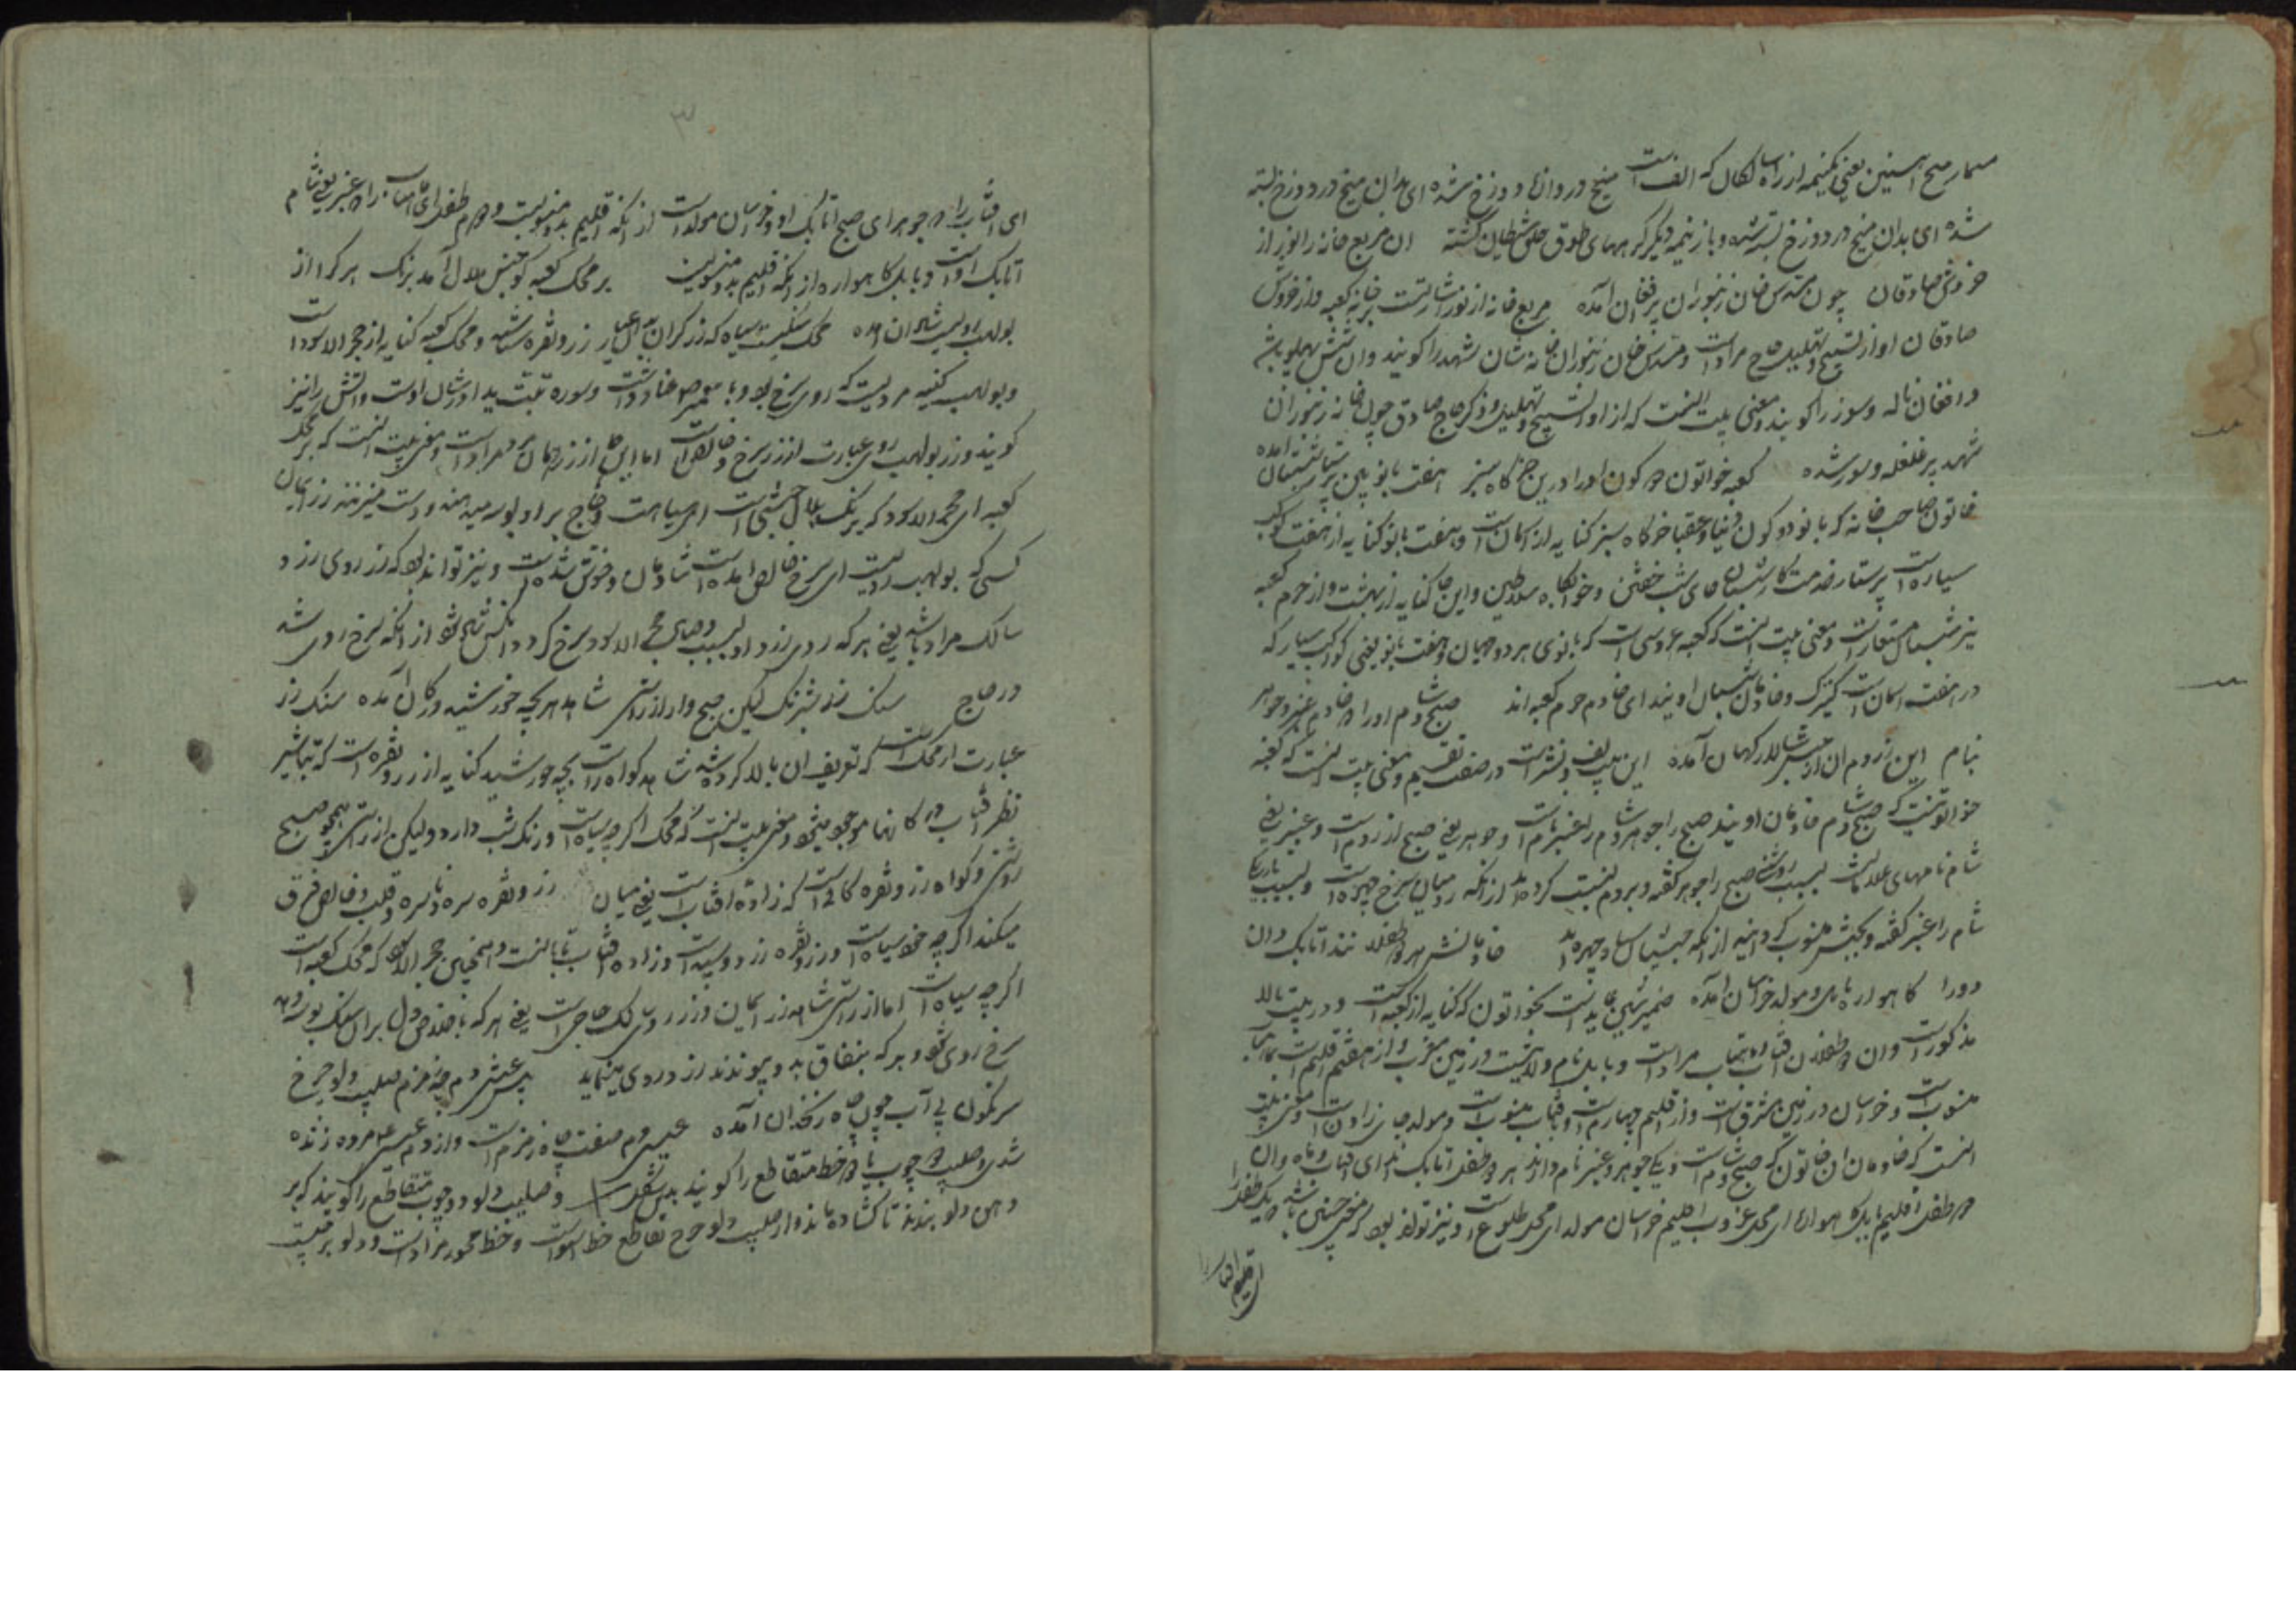 مسمار میخ آهنین یعنی یکنیمه از راه لکال که الفست میخ در وانهاء دوزخ شده ای بدان میخ در دوزخ بسته
شده ای بدان میخ در دوزخ بسته شده و باز نیمه دیگر کر مهای طوق حلق شیطان گشته ان مربع خانه را نور از
خروش صادقان چون مسدس خان زنبوران پر فغان آمده مربع خانه از نور اشارتست بخانه کعبه و از خروش
صادقان اواز تسبیح و تهلیل حاج مرادست و مسدس خان زنبوران خانه شان شهد را گویند و ان شش پهلو باشد
و افغان ناله و سوز را گویند و معنی بیت انست که از اواز تسبیح و تهلیل و ذکر حاج صادق چون خانه زنبوران
شهد پر غلغله و سور شده کعبه خواتون دو کون او را درین خرگاه سبز هفت بانو بین پرستار شبستان آمده
خاتون صاحب خانه که بانو دو کون دنیا و عقبا خرگاه سبز کنایه از آسمان است و هفت بانو کنایه از هفت کوکب
سیاره است پرستار خدمتکار شبستان جای شب خفتن و خوابگاه سلاطین و این جا کنایه از بهشت و از حرم کعبه
نیز شبستان مستعار است و معنی بیت انست که کعبه عروسی است که بانوی هر دو جهان و هفت بانو یعنی کواکب سیار که
در هفت اسمان است کنیزک و خادمان شبستان اویند ای خادم حرم کعبه اند صبح و شام او را دو خادم عنبر و جوهر
بنام این ز روم ان از حبش سالار کیهان آمده این بیت لف و نشر است در صفت تقسیم و معنی بیت انست که کعبه
خواتونیست که صبح و شام خادمان اویند صبح را جوهر و شام را عنبر نام است و جوهر یعنی صبح از روم است و عنبر یعنی
شام نامهای غلامانست بسبب روشنی صبح را جوهر گفته و بروم نسبت کرده اند از انکه رومیان سرخ چهره است و بسبب تاریکی
شام را عنبر گفته و بحبش منسوب کردانیده از انکه حبشیان سیاه چهره اند خادمانش هر دو طفلاند اتابک وان
دو را گاهواره بابل و مولد خراسان آمده ضمیر شین عایدست بخواتون که کنایه از کعبه است و در بیت بالا
مذکور است وان دو طفلان افتاب و ماهتاب مرادست و بابل نام ولایتست در زمین مغرب و از هفتم اقلیم است بماهتاب
منسوب است و خراسان در زمین مشرق است و از اقلیم چهارم است و بافتاب منسوبست و مولد جای زادن است و معنی بیت
انست که خادمان ان خاتون که صبح و شام است و یکی جوهر و عنبر نام دارند هر دو طفل اتابک اند ای افتاب و ماه وان
دو طفل اقلیم بابل گاهواره ای محل غروب اقلیم خراسان مولد ای محل طلوع است و نیز تواند بود که معنی چنین باشد که یک طفل را
ای افتاب را
ای افتاب را و جوهر ای صبح اتابک او و خراسان مولد است از انکه اقلیم بدو منسوبست و دوم طفل را ای ماهتاب را و عنبر یعنی شام
اتابک اوست و بابل گاهواره از انکه اقلیم بدو منسوبست بر محک کعبه کو جنس بلال آمد برنگ هر که را از
بولهب رویست شادان آمده محک سنگیست سیاه که زرگران بدان عیار زر و نقره شناسند و محک کعبه کنایه از حجر الاسود است
و بولهب کنیه مردیست که روی سرخ بود و با پیغمبر عناد داشت و سوره تبت یدا در شان اوست و اتش را نیز
گویند و زر بولهب روی عبارت از زر سرخ و خالص است اما این جا از زر ایمان مرادست و معنی بیت انست که بر محک
کعبه ای حجر الاسود که برنگ بلال حبشی است ای سیاهست و حاج بر او بوسه میدهند و دست میزنند زر ایمان
کسی که بولهب رویست ای سرخ خالص آمده است شادمان و خوش شده است و نیز تواند بود که زر روی زرد
سالک مراد باشد یعنی هر که روی زرد او بسبب وصال حجر الاسود سرخ گردد انکس شادان شود از انکه سرخ روی شد
در حاج سنگ زر شبرنگ لیکن صبح وار از راستی شاهد هر بچه خورشید در کان آمده سنگ زر
عبارت از محک است که تعریف ان بالا کرده شد شاهد گواه را و بچه خورشید کنایه از زر و نقره است که بتاثیر
نظر افتاب در کانها موجود میشود و معنی بیت انست که محک اگر چه سیاه است و رنگ شب دارد ولیکن از راستی همچو صبح
روشن و گواه زر و نقره کانیست که زاده افتاب است یعنی میان زر و نقره سره و ناسره و قلب و خالص فرق
میکند اگر چه خود سیاه است و زر و نقره زرد و سپید است و زاده افتاب تابانست و همچنین حجر الاسود که محک کعبه است
اگر چه سیاه است اما از راستی شاهد زر ایمان و زر روی سالک حاجی است یعنی هر که باخلاص دل بر ان سنگ بوسه دهد
سرخ روی شود و هر که بنفاق بدو پیوندد زرد روی مینماید پس عیسی دم چه زمزم صلیب دلو چرخ
سرنگون بی آب چون چاه زنخدان آمده عیسی دم صفت چاه زمزم است و از دم عیسی ع مرده زنده
شدی و صلیب دو چوب یا دو خط متقاطع را گویند بدین شکل و صلیب دلو دو چوب متقاطع را گویند که بر
دهن دلو بندند تا گشاده ماند و از صلیب دلو چرخ تقاطع خط استوا است و خط محور مرادست و دلو برجیست